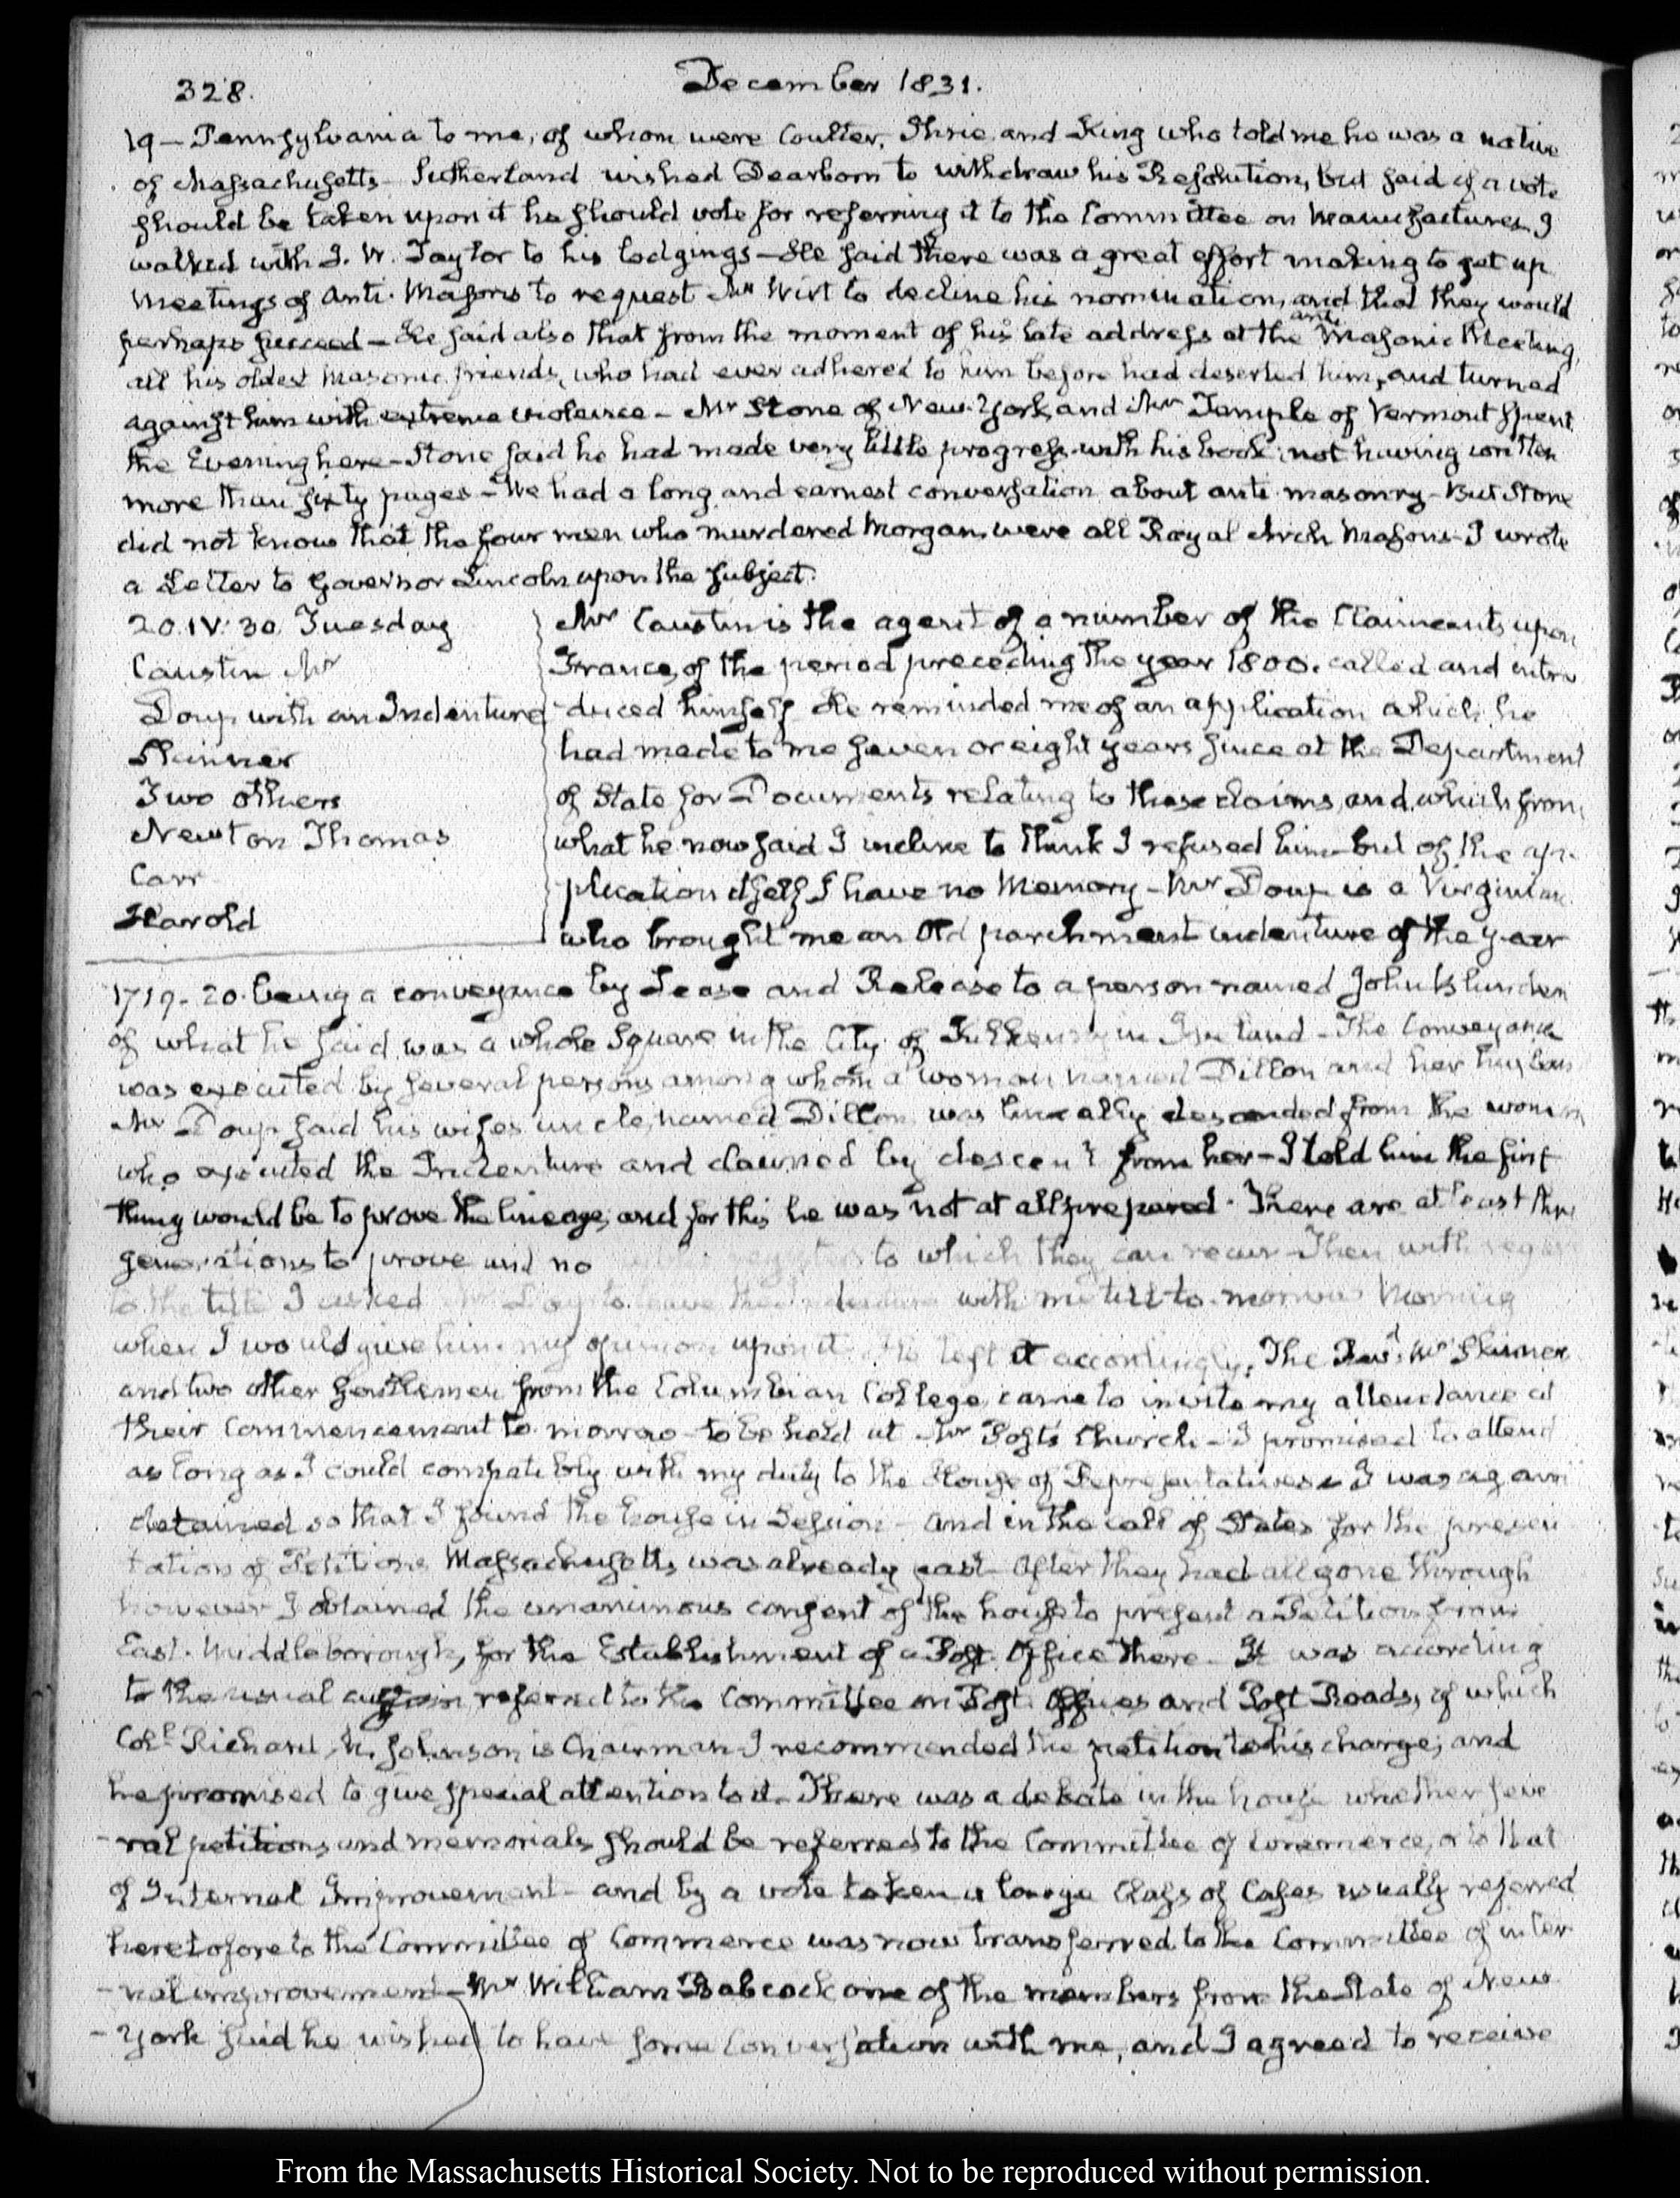 328.
December 1831.
19 — Pennsylvania to me, of whom were Coulter, Ihrie, and King who told me he was a native
of Massachusetts— Sutherland wished Dearborn to withdraw his Resolution, but said if a vote
should be taken upon it he should vote for referring it to the Committee on Manufactures. I
walked with J. W. Taylor to his lodgings — He said there was a great effort making to get up
meetings of Anti-Masons to request Mr Wirt to decline his nomination, and that they would
perhaps succeed — He said also that from the moment of his late address at the anti Masonic Meeting,
all his oldest Masonic friends, who had ever adhered to him before had deserted him, and turned
against him with extreme violence — Mr Stone of New-York, and Mr Temple of Vermont spent
the Evening here — Stone said he had made very little progress with his book; not having written
more than sixty pages — We had a long and earnest conversation about anti-masonry — But Stone
did not know that the four men who murdered Morgan, were all Royal Arch Masons— I wrote
a Letter to Governor Lincoln upon the subject.
20. IV: 30. Tuesday
Caustin Mr
Doup with an Indenture
Skinner
Two others
Newton Thomas
Carr
Harold
Mr Caustin is the agent of a number of the Claimants upon
France, of the period preceding the year 1800. called and intro
-duced himself He reminded me of an application which he
had made to me seven or eight years since at the Department
of State for Documents relating to these claims, and which from
what he now said I incline to think I refused him— but of the ap-
plication itself I have no Memory — Mr Doup is a Virginian
who brought me an Old parchment indenture of the year
1719-20. being a conveyance by Lease and Release to a person named John
of what he said was a whole Square in the City of Kilkenny in Ireland — The Conveyance
was executed by several persons among whom a woman named Dillon and her husband
Mr Doup said his wife's uncle, named Dillon, was lineally descended from the woman
who executed the Indenture and claimed by descent from her — I told him the first
thing would be to prove the lineage, and for this he was not at all prepared. There are at least three
generations to prove and no to which they can recur— Then with regard
to the title I asked Mr Doup to leave the Indenture with me till to-morrow Morning
when I would give him my opinion upon it. He left it accordingly. The Revd. Mr Skinner
and two other Gentlemen from the Columbian College, came to invite my attendance at
their Commencement to-morrow— to be held at Mr Post's Church — I promised to attend
as long as I could compatibly with my duty to the House of Representatives. I was again
detained so that I found the house in Session — and in the call of States for the presen
tation of Petitions Massachusetts was already past— After they had all gone through
however I obtained the unanimous consent of the house to present a Petition from
East-Middleborough, for the Establishment of a Post-Office there— It was according
to the usual custom referred to the Committee on Post-Offices and Post Roads, of which
Coll. Richard M. Johnson is Chairman I recommended the petition to his charge; and
he promised to give special attention to it— There was a debate in the house whether seve
-ral petitions and memorials should be referred to the Committee of Commerce, or to that
of Internal Improvement— and by a vote taken a large Class of Cases usually referred
heretofore to the Committee of Commerce was now transferred to the Committee of inter
-nal improvement — Mr William Babcock one of the members from the State of New-
-York said he wished to have some Conversation with me, and I agreed to receive
From the Massachusetts Historical Society. Not to be reproduced without permission.